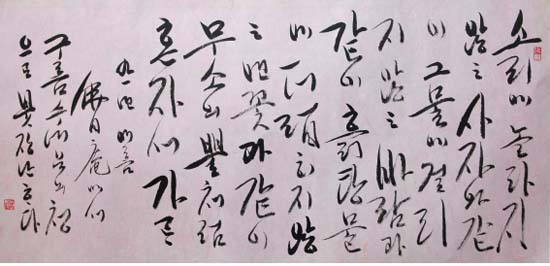 소리에 놀라지
않는 사자와 같
이 그물에 걸리
지 않는 바람과
같이 흙탕물
에 더럽히지 않
는 연꽃과 같이
무소의 뿔처럼
혼자서 가라
佛日庵에서